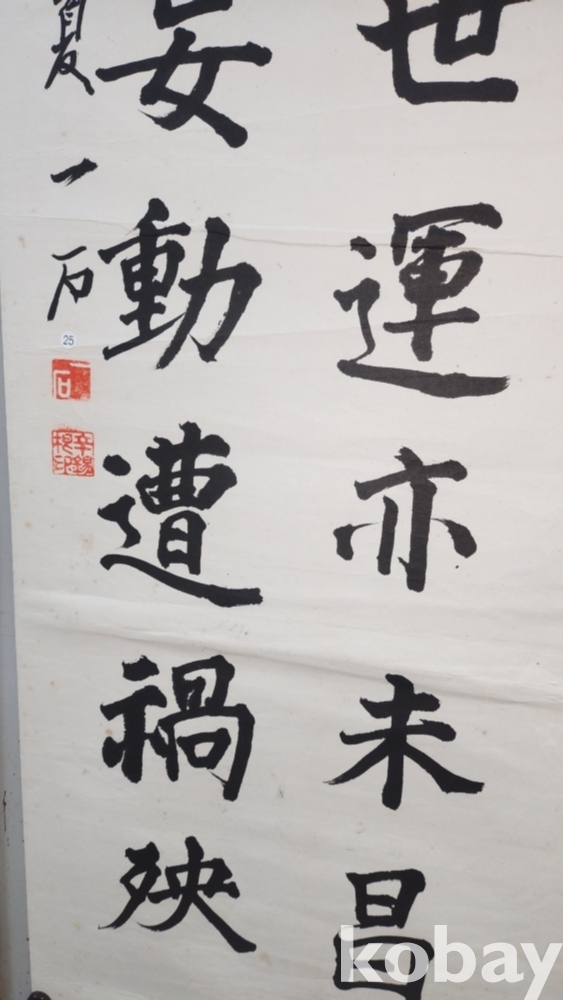 世運亦未昌
妄動遭禍殃
夏一石
25
一石
辛錫
根印
kobay